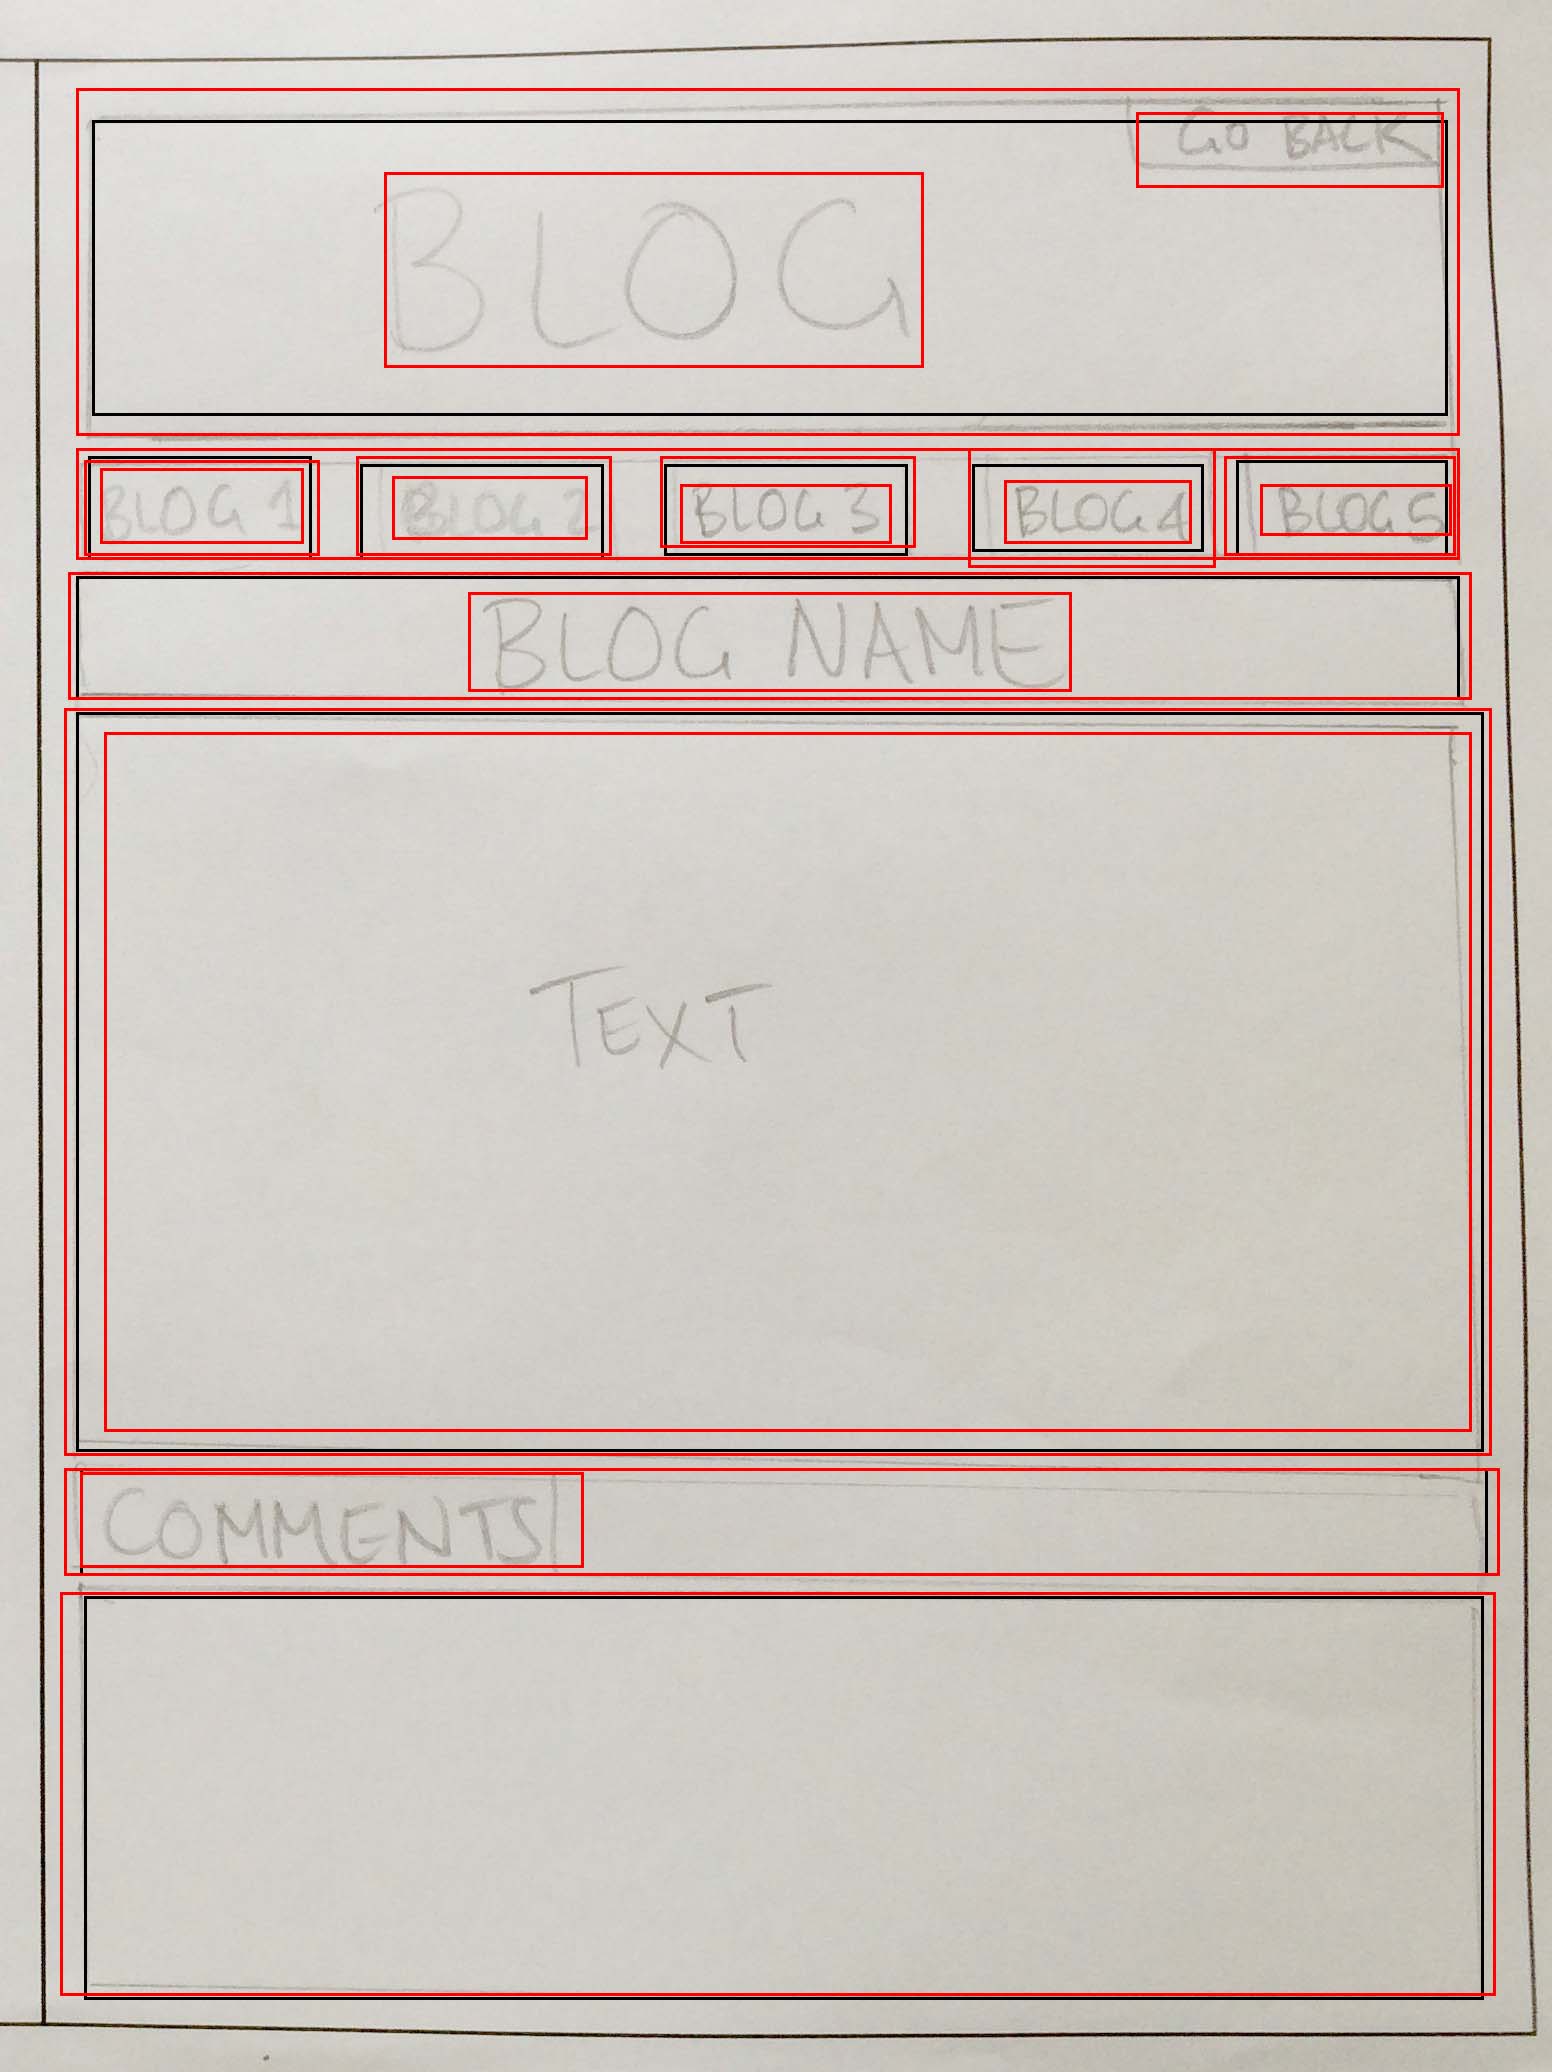 GO BACK
BLOG
BLOG 1 BLOG 2 BLOG 3 BLOG 4 BLOG 5
BLOG NAME
TEXT
COMMENTS